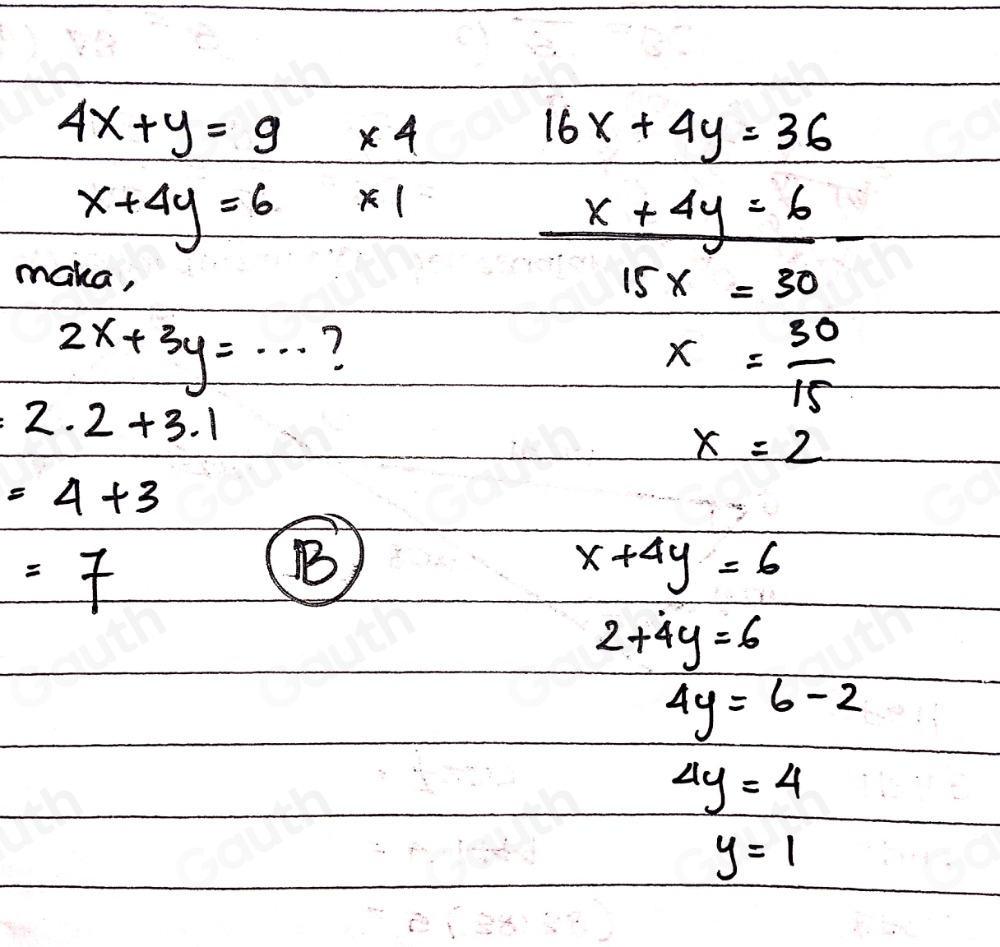 4x + y = 9   × 4   16x + 4y = 36
x + 4y = 6   × 1   x + 4y = 6 −
maka,
15x = 30
2x + 3y = ... ?
x = 30/15
= 2 . 2 + 3 . 1
x = 2
= 4 + 3
= 7   B
x + 4y = 6
2 + 4y = 6
4y = 6 - 2
4y = 4
y = 1
Gauth